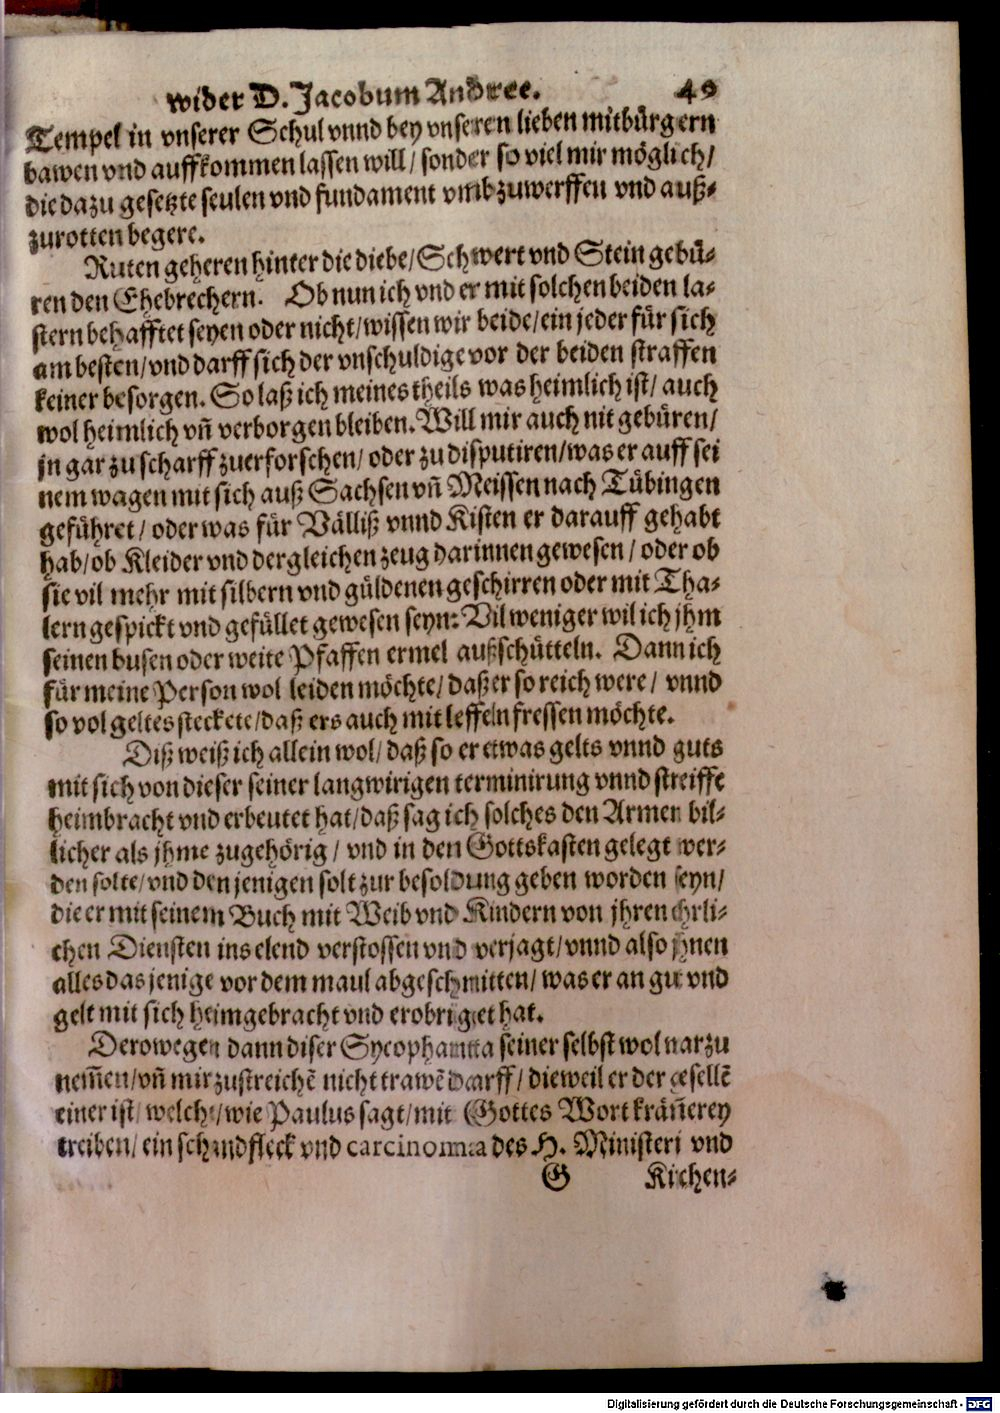 wider D. Jacobum Andree. 49
Tempel in vnserer Schul vnnd bey vnseren lieben mitbürgern
bawen vnd auffkommen lassen will / sonder so viel mir möglich /
die dazu gesetzte seulen vnd fundament vmbzuwerffen vnd auß-
zurotten begere.
Ruten geheren hinter die diebe / Schwert vnd Stein gebü-
ren den Ehebrechern. Ob nun ich vnd er mit solchen beiden la-
stern behafftet seyen oder nicht / wissen wir beide / ein jeder für sich
am besten / vnd darff sich der vnschuldige vor der beiden straffen
keiner besorgen. So laß ich meines theils was heimlich ist / auch
wol heimlich vn̄ verborgen bleiben. Will mir auch nit gebüren /
jn gar zu scharff zuerforschen / oder zu disputiren / was er auff sei
nem wagen mit sich auß Sachsen vn̄ Meissen nach Tübingen
geführet / oder was für Välliß vnnd Kisten er darauff gehabt
hab / ob Kleider vnd dergleichen zeug darinnen gewesen / oder ob
sie vil mehr mit silbern vnd güldenen geschirren oder mit Tha-
lern gespickt vnd gefüllet gewesen seyn: Vil weniger wil ich jhm
seinen busen oder weite Pfaffen ermel außschütteln. Dann ich
für meine Person wol leiden möchte / daß er so reich were / vnnd
so vol geltes steckete / daß ers auch mit leffeln fressen möchte.
Diß weiß ich allein wol / daß so er etwas gelts vnnd guts
mit sich von dieser seiner langwirigen terminirung vnnd streiffe
heimbracht vnd erbeutet hat / daß sag ich solches den Armen bil-
licher als jhme zugehörig / vnd in den Gottskasten gelegt wer-
den solte / vnd den jenigen solt zur besoldung geben worden seyn /
die er mit seinem Buch mit Weib vnd Kindern von jhren ehrli-
chen Diensten ins elend verstossen vnd verjagt / vnnd also jhnen
alles das jenige vor dem maul abgeschnitten / was er an gut vnd
gelt mit sich heimgebracht vnd erobriget hat.
Derowegen dann diser Sycophanta seiner selbst wol narzu
nem̄en / vn̄ mir zustreichē nicht trawē darff / dieweil er der gesellē
einer ist / welche / wie Paulus sagt / mit Gottes Wort krän̄erey
treiben / ein schandfleck vnd carcinoma des H. Ministeri vnd
G Kirchen-
Digitalisierung gefördert durch die Deutsche Forschungsgemeinschaft - DFG